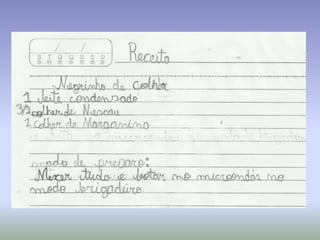 D S T Q Q S S
Receita
Negrinho de colher
1 leite condensado
3/2 colher de Nescau
1 Colher de Margarina
modo de preparo:
Mexer tudo e botar no microondas no
modo brigadeiro.